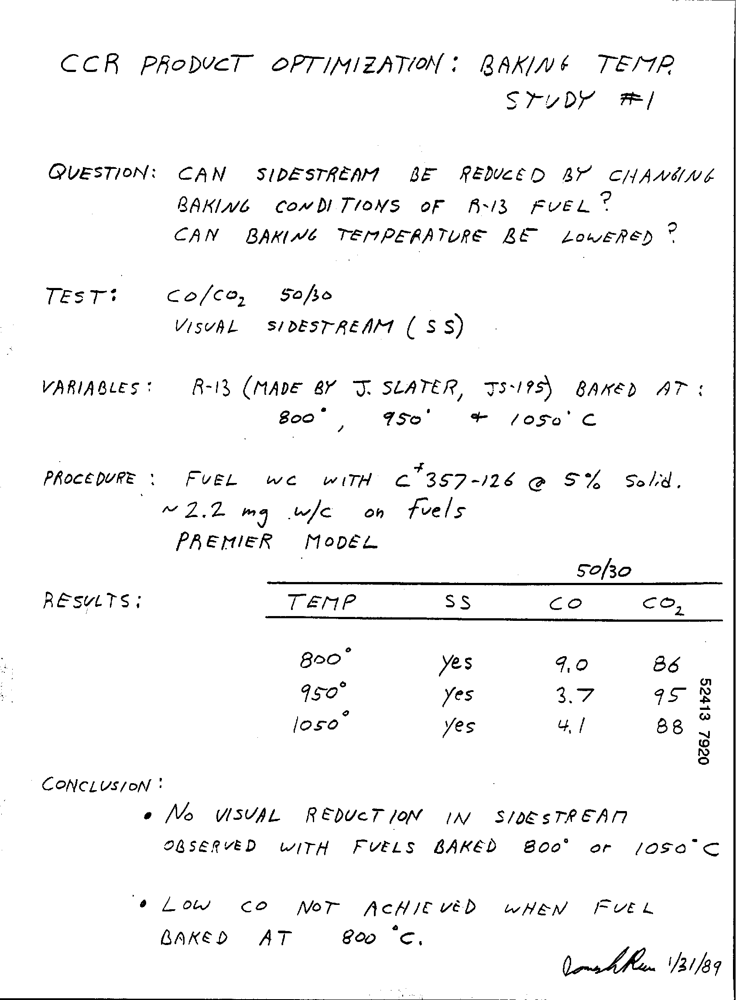 CCR PRODUCT OPTIMIZATION: BAKING TEMP.
STUDY #1
QUESTION: CAN SIDESTREAM BE REDUCED BY CHANGING
BAKING CONDITIONS OF R-13 FUEL?
CAN BAKING TEMPERATURE BE LOWERED?
TEST: CO/CO₂ 50/30
VISUAL SIDESTREAM (SS)
VARIABLES: R-13 (MADE BY J. SLATER, JS-195) BAKED AT:
800°, 950° + 1050°C
PROCEDURE: FUEL WC WITH C+357-126 @ 5% Solid.
~2.2 mg w/c on fuels
PREMIER MODEL
50/30
RESULTS: TEMP SS CO CO₂
800° yes 9.0 86
950° yes 3.7 95
1050° yes 4.1 88
52413 7920
CONCLUSION:
• NO VISUAL REDUCTION IN SIDESTREAM
OBSERVED WITH FUELS BAKED 800° or 1050°C
• LOW CO NOT ACHIEVED WHEN FUEL
BAKED AT 800°C.
1/31/89